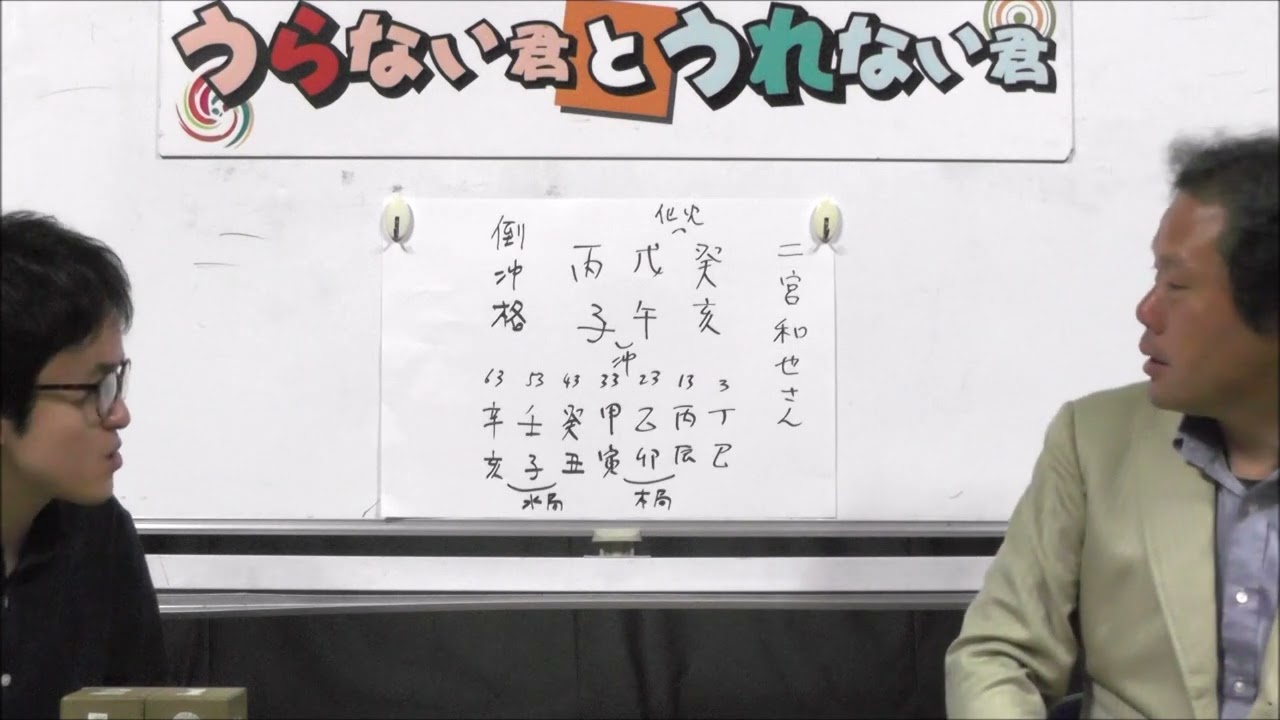 うらない君とうれない君
二宮和也さん
化火
癸 戊 丙
亥 午 子
冲
倒冲格
3 13 23 33 43 53 63
丁 丙 乙 甲 癸 壬 辛
巳 辰 卯 寅 丑 子 亥
木局 水局